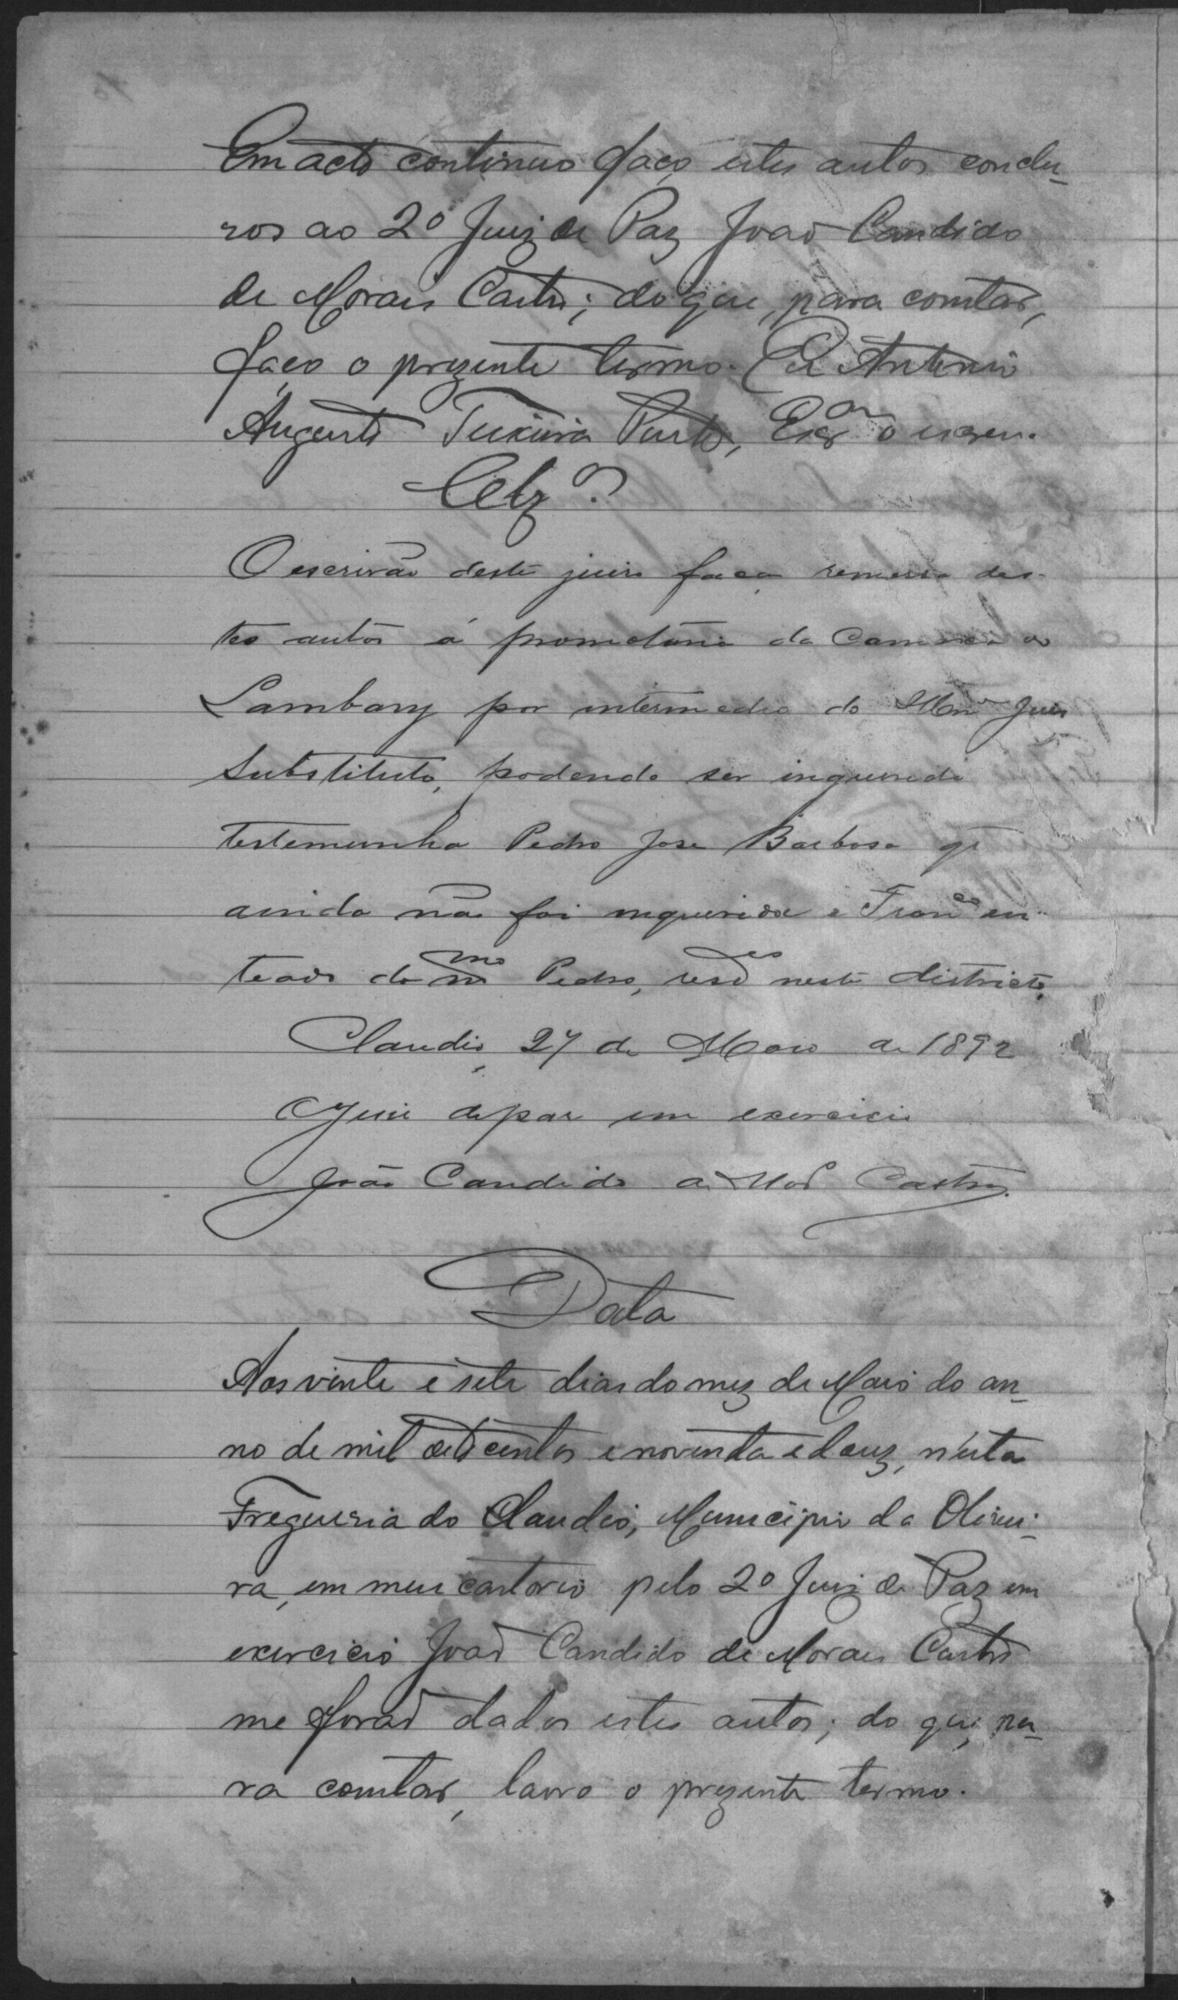 Em acto continuo faço estes autos conclu-
zos ao 2º Juiz de Paz João Candido
de Morais Castro; do que, para constar,
faço o prezente termo. Eu Antonio
Augusto Teixeira Porto, Escr.am o escrevi.
Clz.º
O escrivão deste juiso faça remessa des-
tes autos á promotoria da Comarca
Lambary por intermedio do Juis
Substituto, podendo ser inquerida
testemunha Pedro José Barbosa q
ainda não foi inquerida e Fran.co en-
teado do m.mo Pedro, resd.es neste districto.
Claudio, 27 de Maio de 1892
O Juis de paz em exercicio
João Candido de Mor.s Castro.
Data
Aos vinte e sete dias do mez de Maio do an-
no de mil oitocentos e noventa e douz, n'esta
Freguezia do Claudio, Municipio da Olivei-
ra, em meu cartorio pelo 2º Juiz de Paz em
exercicio João Candido de Morais Castro
me forão dados estes autos; do que, pa-
ra constar, lavro o prezente termo.